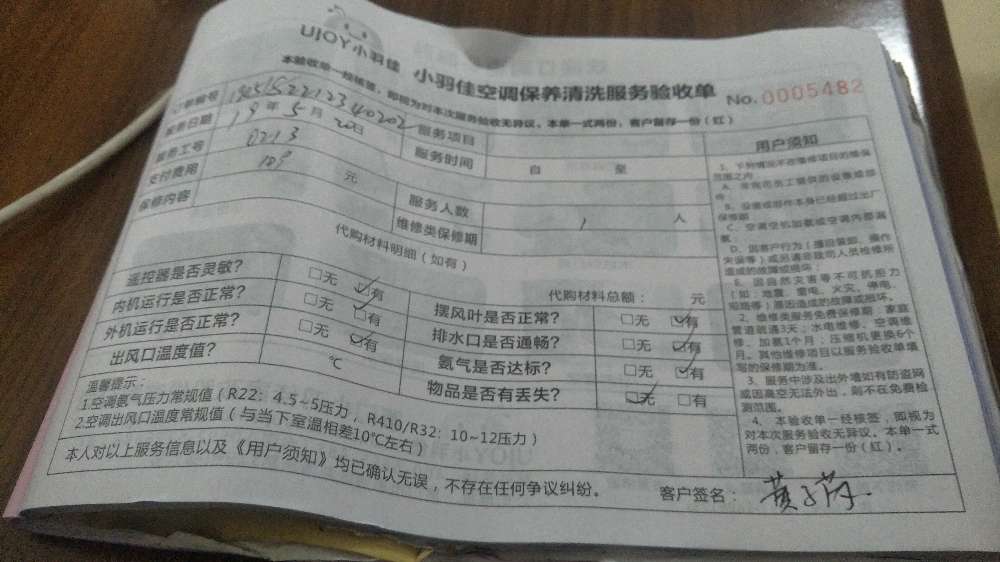 UJOY小羽佳
小羽佳空调保养清洗服务验收单
No.0005482
本验收单一经核签，即视为对本次服务验收无异议。本单一式两份，客户留存一份（红）
订单编号 服务项目
服务日期 19年5月20日 服务时间 自 至
服务工号 0213
支付费用 元 服务人数 1 人
保修内容 维修类保修期
代购材料明细（如有）
代购材料总额： 元
遥控器是否灵敏？ 无 有 摆风叶是否正常？ 无 有
内机运行是否正常？ 无 有 排水口是否通畅？ 无 有
外机运行是否正常？ 无 有 氨气是否达标？ 无 有
出风口温度值？ ℃ 物品是否有丢失？ 无 有
温馨提示：
1.空调氨气压力常规值（R22：4.5~5压力，R410/R32：10~12压力）
2.空调出风口温度常规值（与当下室温相差10℃左右）
本人对以上服务信息以及《用户须知》均已确认无误，不存在任何争议纠纷。
客户签名：
用户须知
1、下列情况不在维修项目的维保
范围之内
A、非我司员工提供的设备或部
件；
B、设备或部件本身已经超过出厂
保修期
C、空调空机加氨或空调内部漏
氨；
D、因客户行为（擅自装卸、操作
失误等）或另请非我司人员检修所
造成的故障或损坏；
E、因自然灾害等不可抗拒力
（如：地震、雷电、火灾、停电、
短路等）原因造成的故障或损坏。
2、维修类服务免费保修期：家庭
管道疏通3天；水电维修、空调维
修、加氨1个月；压缩机更换6个
月。其他维修项目以服务验收单填
写的保修期为准。
3、服务中涉及出外墙如有防盗网
或因高空无法外出，则不在免费检
测范围。
4、本验收单一经核签，即视为
对本次服务验收无异议。本单一式
两份，客户留存一份（红）。